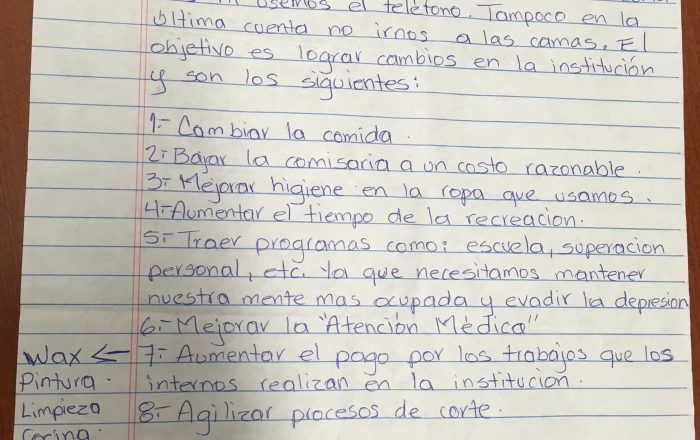 usemos el teléfono. Tampoco en la
última cuenta no irnos a las camas. El
objetivo es lograr cambios en la institución
y son los siguientes:
1.- Cambiar la comida.
2.- Bajar la comisaria a un costo razonable.
3.- Mejorar higiene en la ropa que usamos.
4.- Aumentar el tiempo de la recreacion.
5.- Traer programas como: escuela, superacion
personal, etc. Ya que necesitamos mantener
nuestra mente mas ocupada y evadir la depresion
6.- Mejorar la "Atención Médica"
Wax ← 7.- Aumentar el pago por los trabajos que los
Pintura. internos realizan en la institucion.
Limpieza 8.- Agilizar procesos de corte.
Cocina.